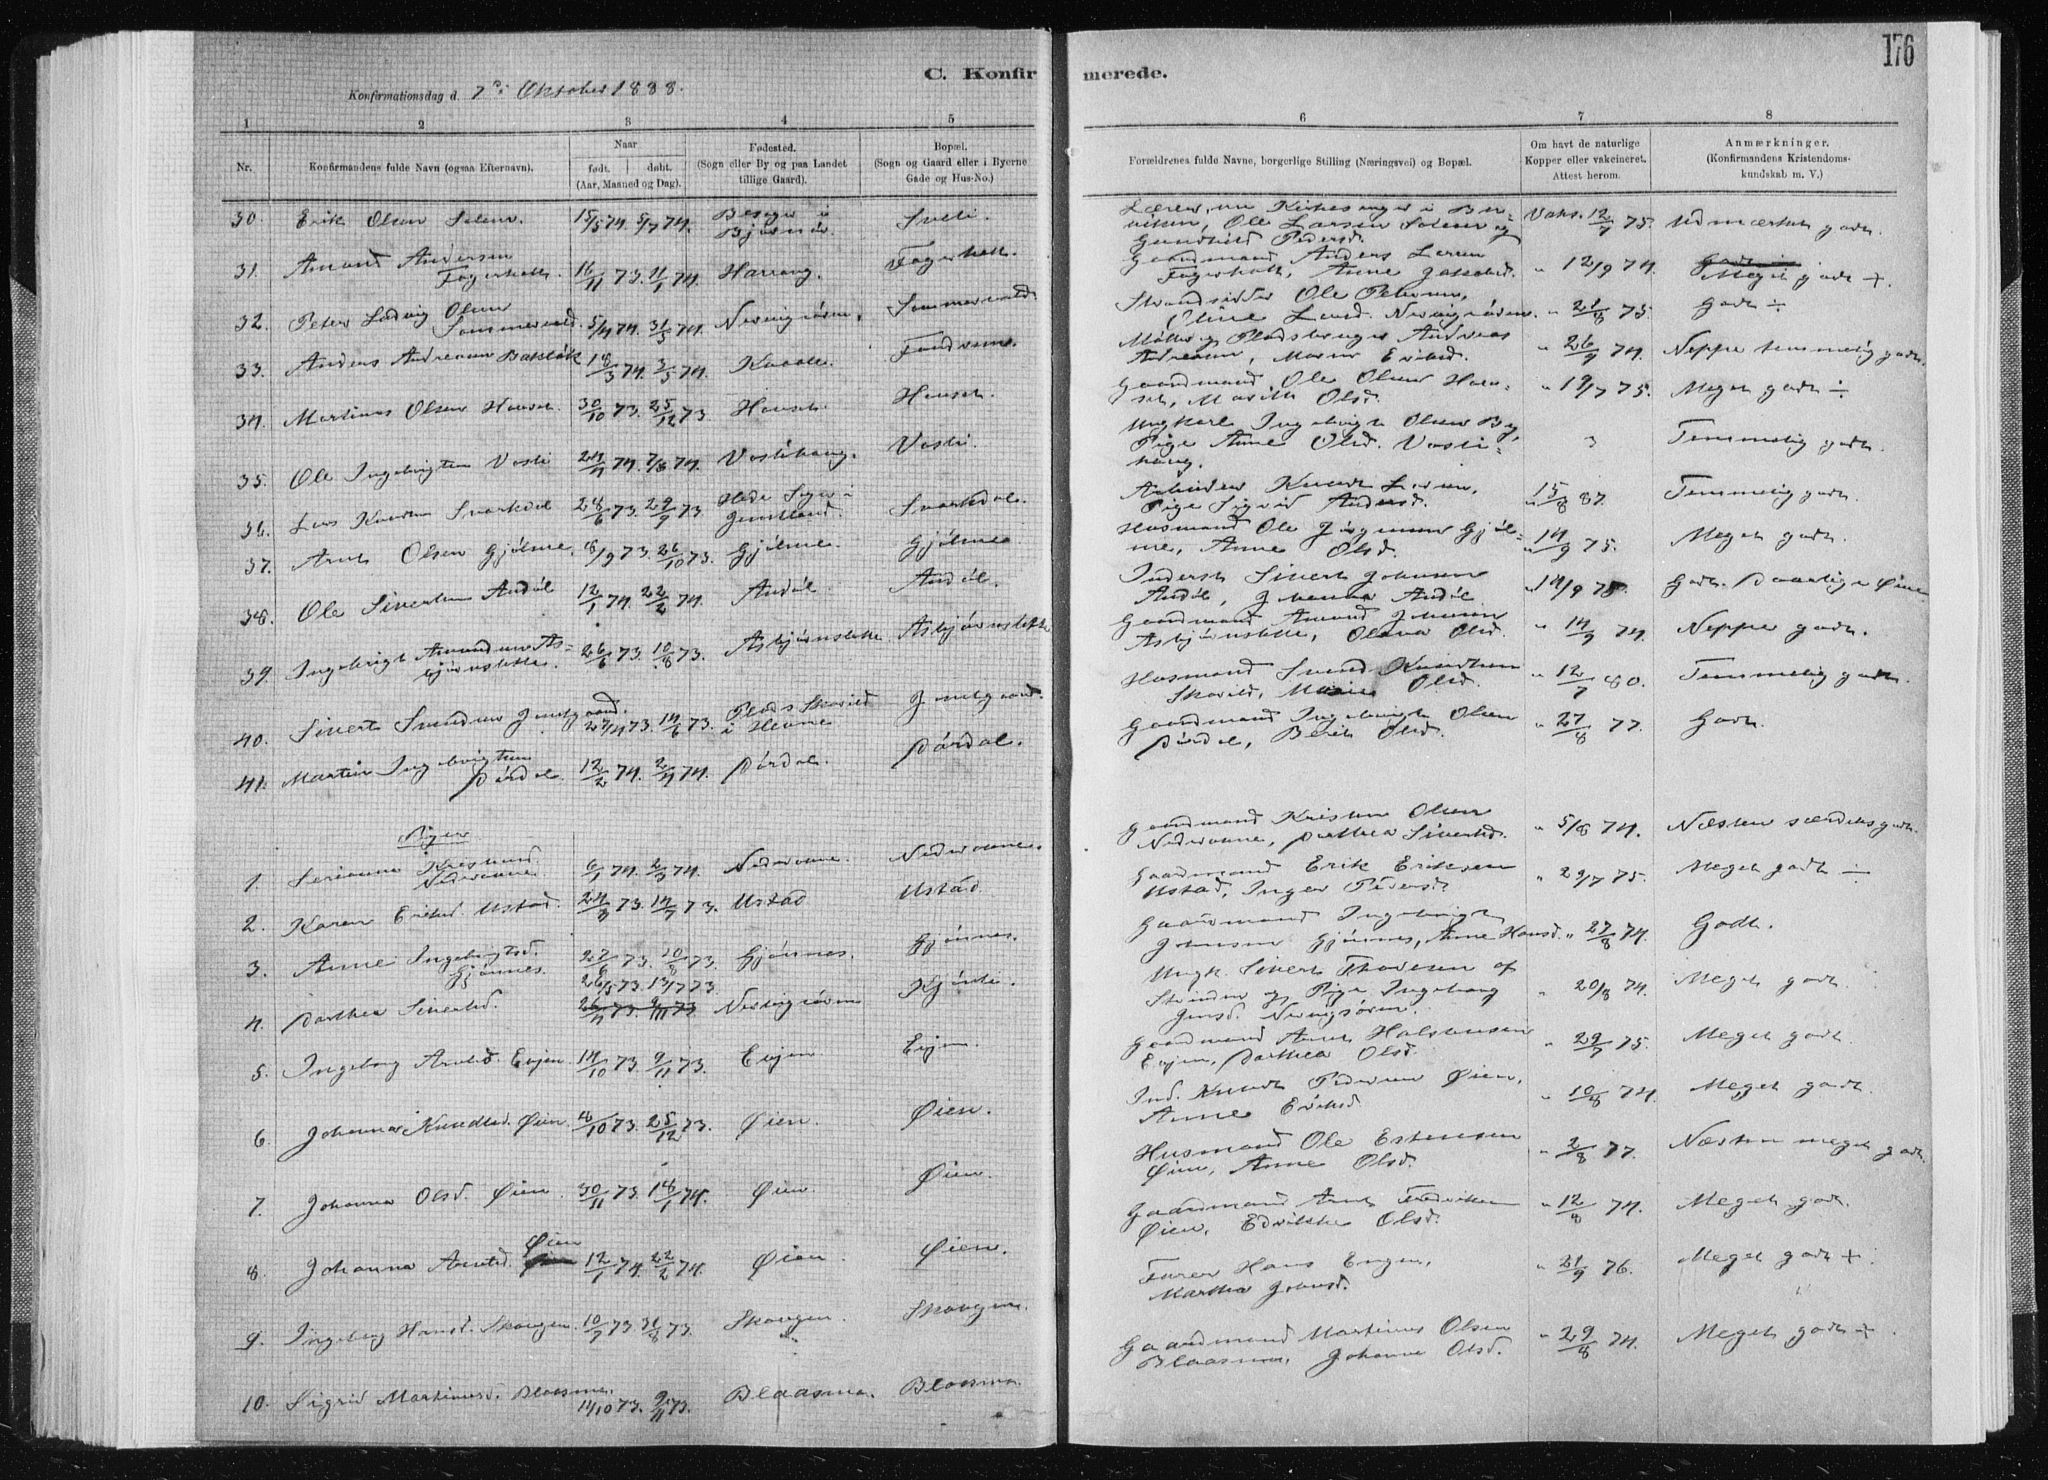 176
C. Konfirmerede.
Konfirmationsdag d. 7de Oktober 1888.
1 2 3 4 5 6 7 8
Nr. Konfirmandens fulde Navn (ogsaa Efternavn). Naar født. døbt. (Aar, Maaned og Dag). Fødested. (Sogn eller By og paa Landet tillige Gaard). Bopæl. (Sogn og Gaard eller i Byerne Gade og Hus-No.) Forældrenes fulde Navne, borgerlige Stilling (Næringsvei) og Bopæl. Om havt de naturlige Kopper eller vakcineret. Attest herom. Anmærkninger. (Konfirmandens Kristendomskundskab m. V.)
30. Erik Olsen Solem. 15/5 74. 5/7 74. Sveli. Ole Larsen Solem og Gunhild Pedersd. Vaks. 12/7 75. Udmærket godt.
31. Amund Andersen Fagerholt. 16/11 73. 11/1 74. Harrang. Fagerholt. Gaardmand Anders Larsen Fagerholt, Anne Jakobsd. " 12/9 74. Meget godt +.
32. Peter Ludvig Olsen Sommervold. 5/4 74. 31/5 74. Strandsidder Ole Petersen, " 21/8 75 Godt ÷
33. Anders Andreasen 18/3 74. 3/5 74. Kaaale. Andreas Andreasen, " 26/9 74. Neppe temmelig godt.
34. Martinus Olsen Hauset. 30/10 73. 25/12 73. Hauset. Hauset. Gaardmand Ole Olsen Hauset, Marith Olsd. " 19/7 75. Meget godt ÷
35. Ole Ingebrigtsen Vasli 24/4 74. 7/6 74. Vaslihaug. Vasli. Ungkarl Ingebrigt Olsen By, Pige Anne Olsd. Vaslihaug. Temmelig godt.
36. Lars Knudsen Svorkdal 28/6 73. 29/9 73. Svorkdal. Arbeider Knudt Larsen, Pige Sigrid Andersd. " 15/8 87. Temmelig godt.
37. Arnt Olsen Gjølme. 8/9 73. 26/10 73. Gjølme. Gjølme Husmand Ole Jørgensen Gjølme, Anne Olsd. " 14/9 75. Meget godt.
38. Ole Sivertsen Asdøl 12/1 74. 22/2 74. Asdøl. Asdøl. Inderst Sivert Johnsen " 14/9 75. Godt. Daarlige Øine
39. Ingebrigt Amundsen Asbjørnslette. 26/6 73. 10/8 73. Asbjørnslette. Asbjørnslette Gaardmand Amund Johnsen Asbjørnslette, Olava Olsd. " 14/9 74. Neppe godt.
40. Sivert Svendsen Jemtgaard. 27/4 73. 14/6 73. Plads Skarild i Hevne Jemtgaard. Husmand Svend Knudsen Skarild, Marie Olsd. " 12/7 80. Temmelig godt.
41. Martin Ingebrigtsen Dørdal. 12/2 74. 2/4 74. Dørdal. Dørdal. Gaardmand Ingebrigt Olsen Dørdal, Berit Olsd. " 27/8 77. Godt.
Piger
1. Serianna Kristensd. Nedervane. 6/1 74. 2/3 74. Nedervane. Nedervane. Gaardmand Kristen Olsen Nedervane, Dorthea Sivertsd. " 5/8 74. Næsten særdeles godt.
2. Karen Eriksd. Ustad. 14/7 73. Ustad Ustad. Gaardmand Erik Eriksen Ustad, Inger Pedersd. " 29/7 75. Meget godt ÷
3. Anne Ingebrigtsd. Gjønnes. 27/6 73. 10/8 73. Gjønnes. Gjønnes. Gaardmand Ingebrigt Johnsen Gjønnes, Anne Hansd. " 27/8 74. Godt.
4. Dorthea Sivertsd. 26/5 73. 13/7 73 Kjønli. Ungk. Sivert Thoresen af Strinden og Pige Ingeborg " 20/8 74. Meget godt.
5. Ingeborg Arntsd. Evjen. 14/10 73. 9/11 73. Evjen Evjen. Gaardmand Arnt Halstensen Evjen, Dorthea Olsd. " 29/7 75. Meget godt.
6. Johanna Knudtsd. Øien. 8/10 73. 25/12 73. Øien. Øien. Ind. Knudt Pedersen Øien, Anne Eriksd. " 10/8 74. Meget godt.
7. Johanna Olsd. Øien. 30/11 73. 18/1 74. Øien Øien. Husmand Ole Estensen Øien, Anne Olsd. " 2/8 77. Næsten meget godt.
8. Johanna Arntsd. Øien 12/1 74. 22/2 74. Øien. Øien. Gaardmand Arnt Fredriksen Øien, Olsd. " 12/8 74. Meget godt.
9. Ingeborg Hansd. Skaugen. 10/7 73. 31/8 73. Skaugen. Skaugen. Furer Hans Engen, Martha Johnsd. " 21/9 76. Meget godt +.
10. Sigrid Martinusd. Blaasmo. 14/10 73. 9/11 73. Blaasmo. Blaasmo. Gaardmand Martinus Olsen Blaasmo, Johanne Olsd. " 29/8 74. Meget godt +.